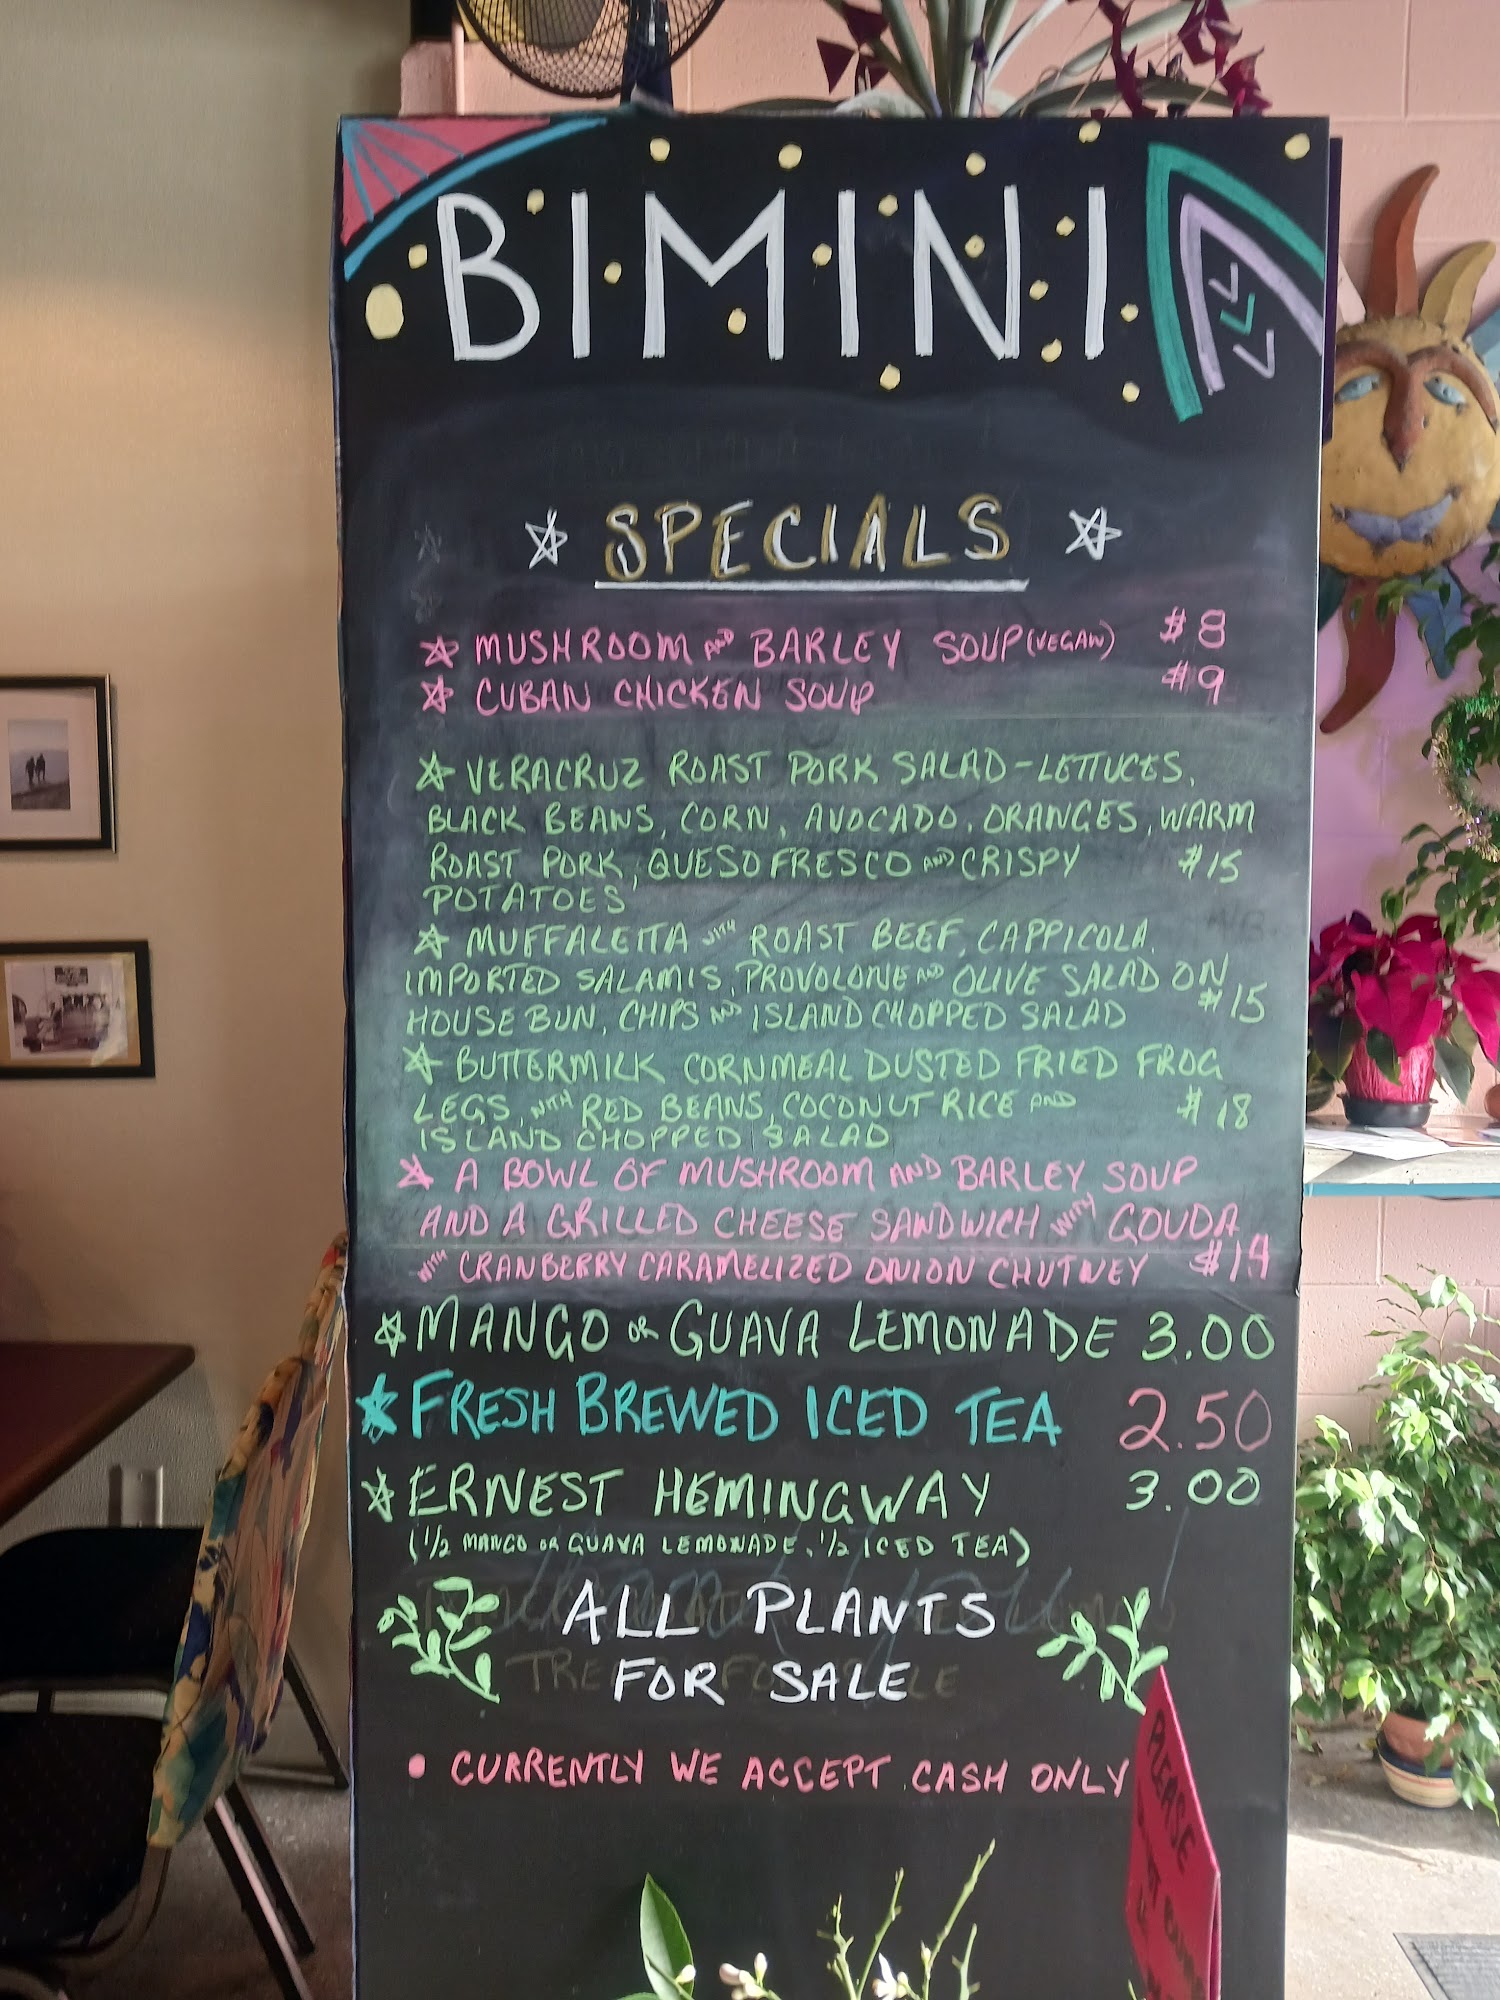 BIMINI
SPECIALS
MUSHROOM AND BARLEY SOUP (VEGAN) $8
CUBAN CHICKEN SOUP $9
VERACRUZ ROAST PORK SALAD-LETTUCES,
BLACK BEANS, CORN, AVOCADO, ORANGES, WARM
ROAST PORK, QUESO FRESCO AND CRISPY $15
POTATOES
MUFFALETTA WITH ROAST BEEF, CAPPICOLA,
IMPORTED SALAMIS, PROVOLONE AND OLIVE SALAD ON
HOUSE BUN, CHIPS AND ISLAND CHOPPED SALAD $15
BUTTERMILK CORNMEAL DUSTED FRIED FROG
LEGS, WITH RED BEANS, COCONUT RICE AND $18
ISLAND CHOPPED SALAD
A BOWL OF MUSHROOM AND BARLEY SOUP
AND A GRILLED CHEESE SANDWICH WITH GOUDA
WITH CRANBERRY CARAMELIZED ONION CHUTNEY $14
MANGO OR GUAVA LEMONADE 3.00
FRESH BREWED ICED TEA 2.50
ERNEST HEMINGWAY 3.00
(1/2 MANGO OR GUAVA LEMONADE, 1/2 ICED TEA)
ALL PLANTS
FOR SALE
• CURRENTLY WE ACCEPT CASH ONLY
PLEASE